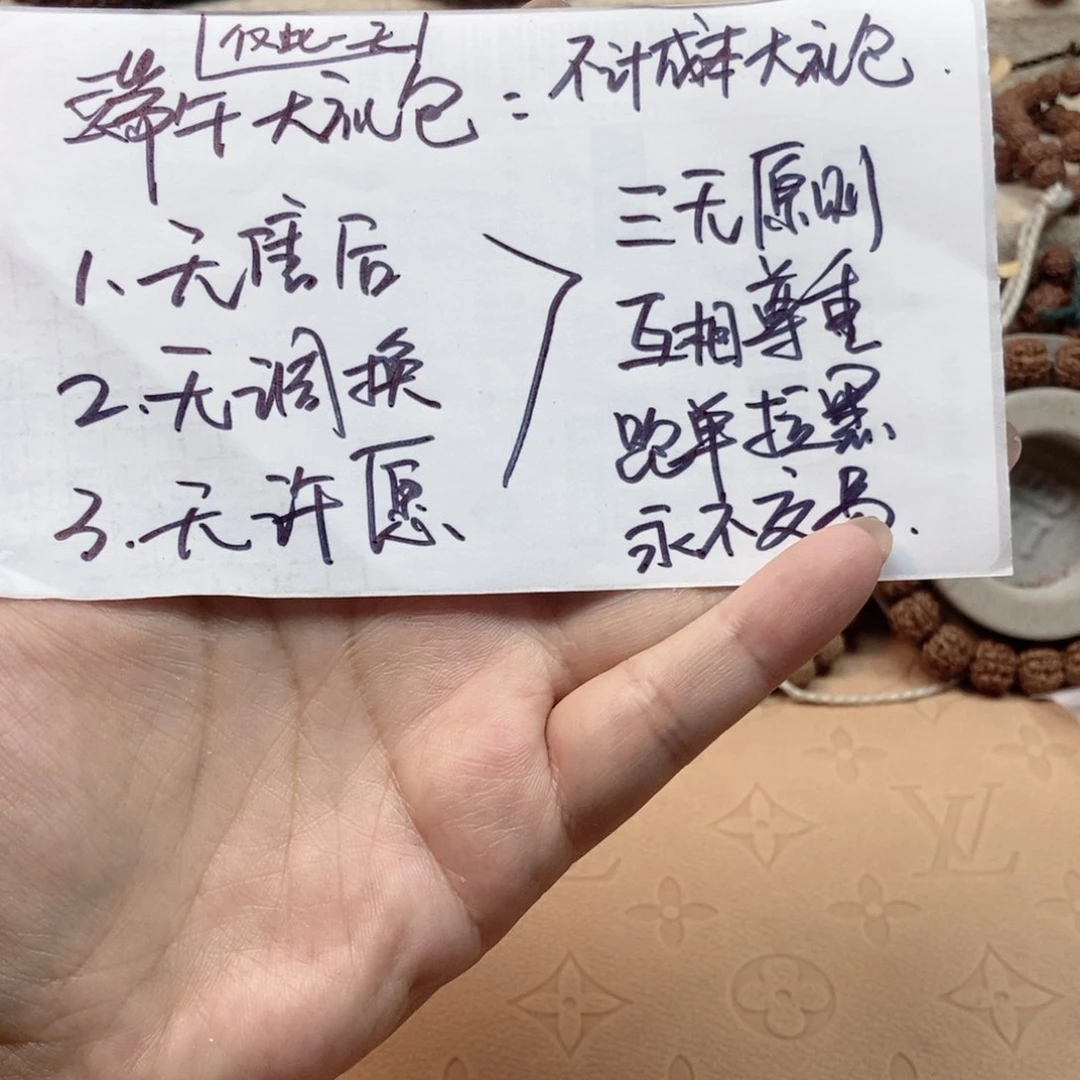 仅此一天
端午大礼包 = 不计成本大礼包.
1、无售后
2.无调换
3.无许愿
三无原则
互相尊重
跑单拉黑
永不交易.
LV